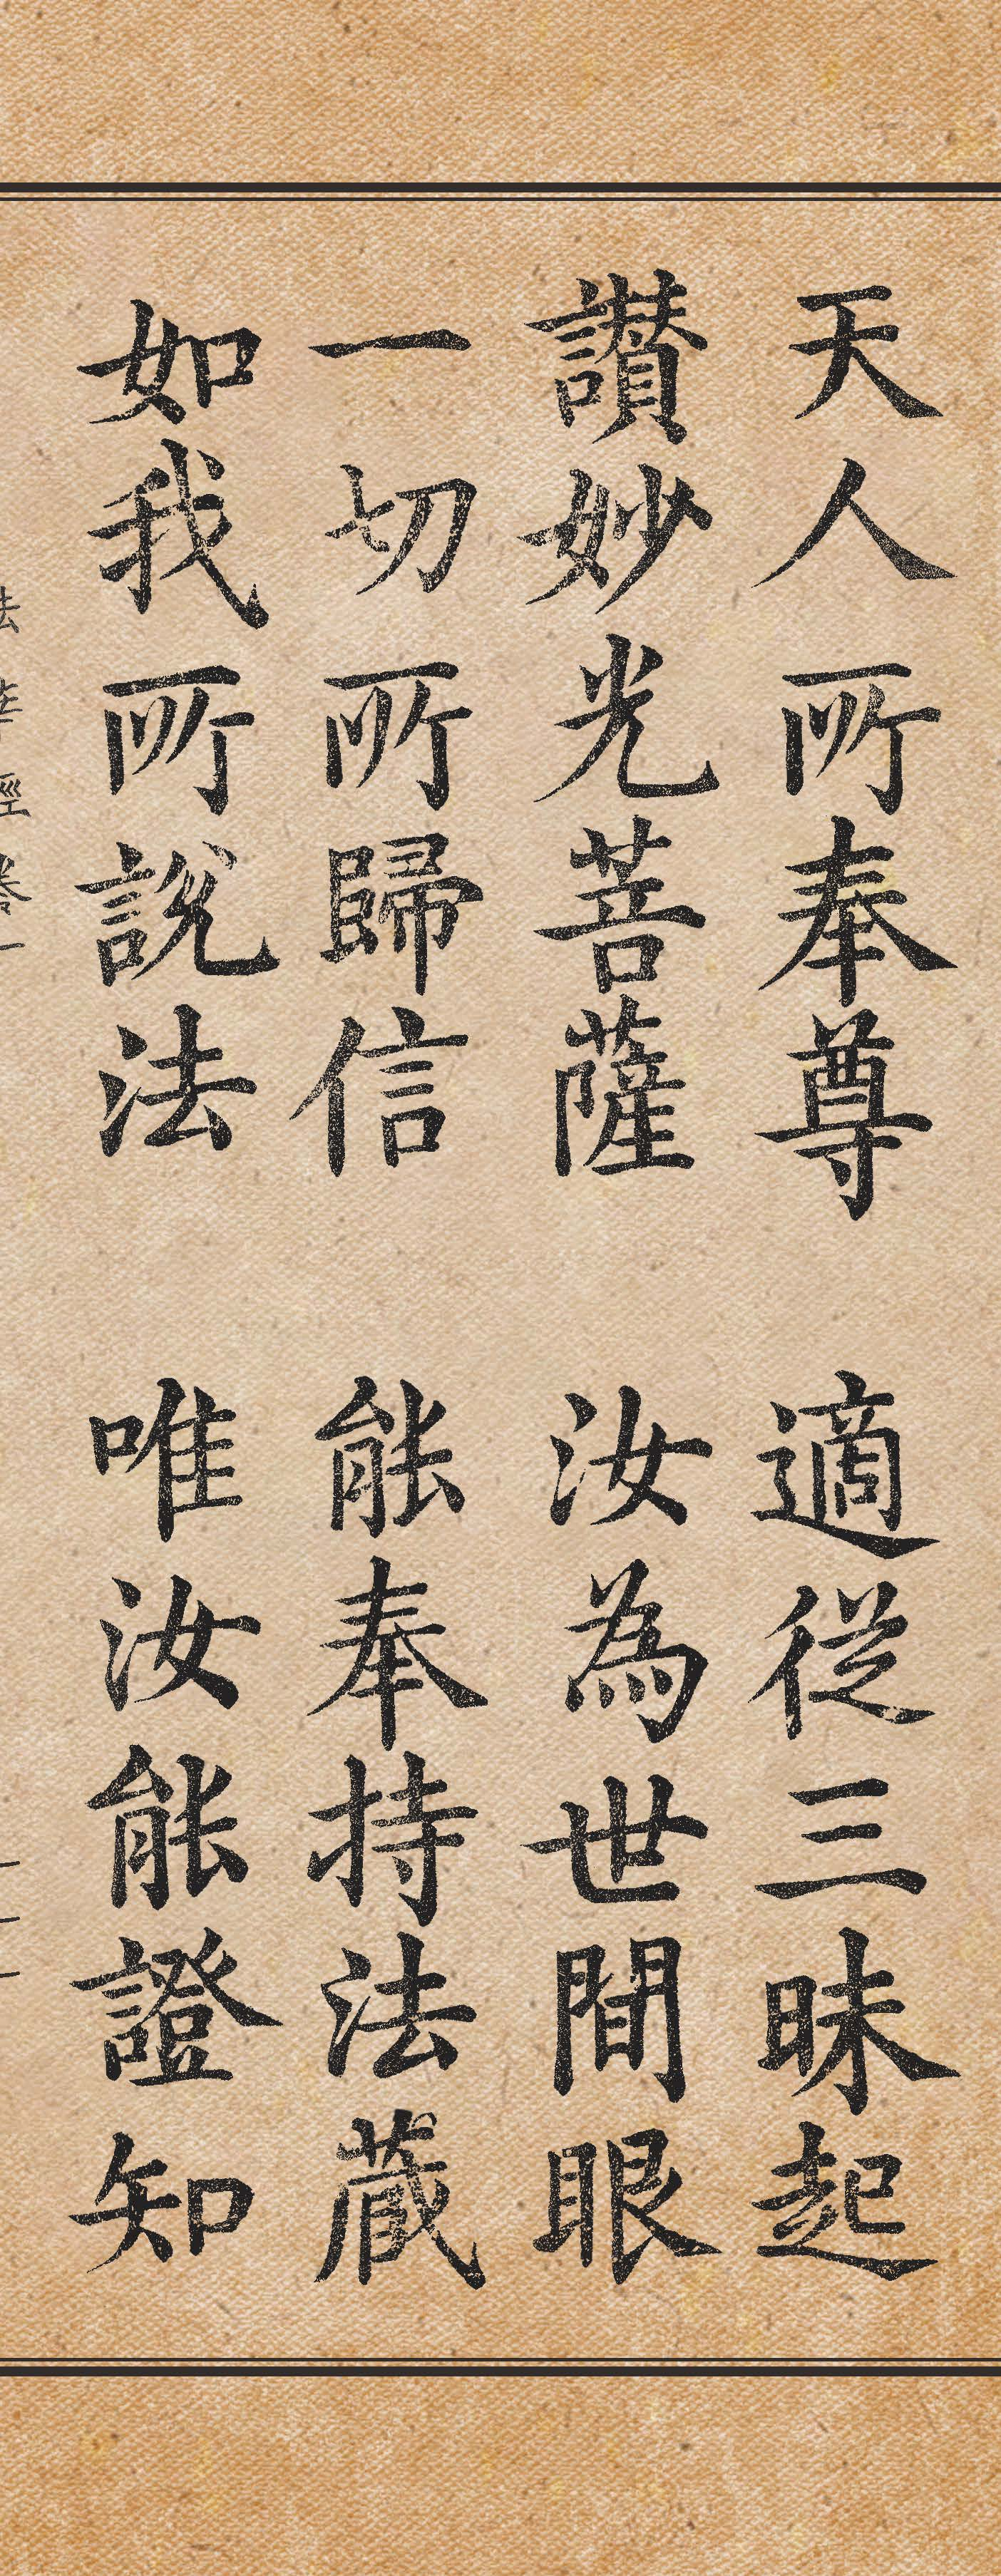 天人所奉尊　適從三昧起
讃妙光菩薩　汝為世間眼
一切所歸信　能奉持法藏
如我所說法　唯汝能證知
法華經卷一　一一一